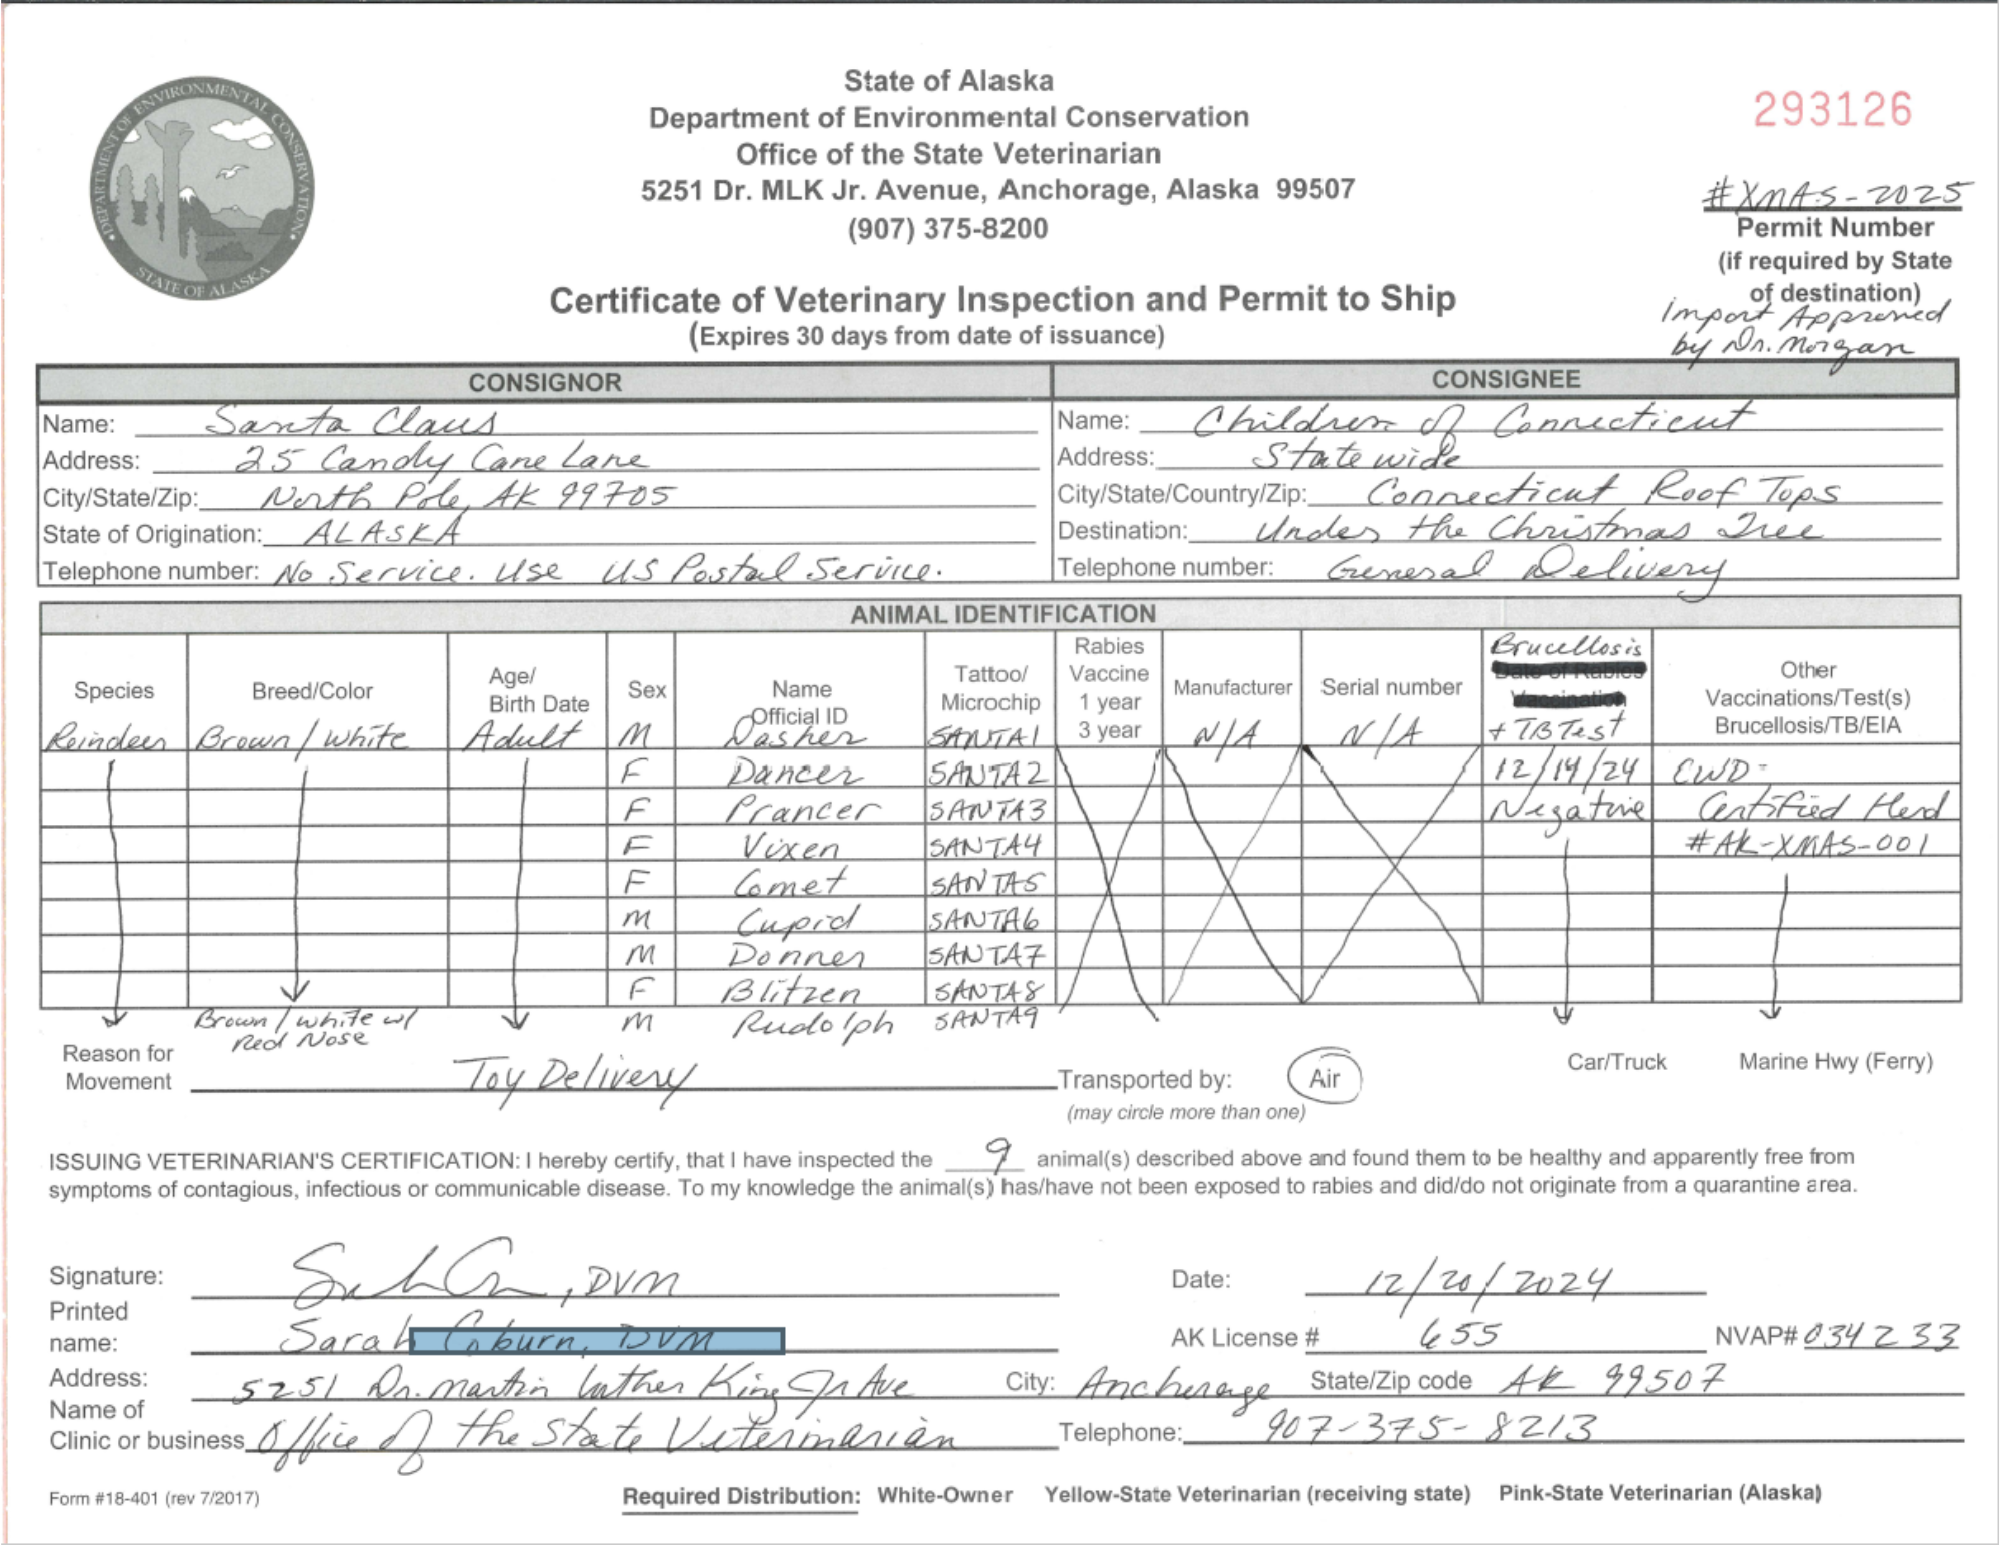 DEPARTMENT OF ENVIRONMENTAL CONSERVATION
STATE OF ALASKA
State of Alaska
Department of Environmental Conservation
Office of the State Veterinarian
5251 Dr. MLK Jr. Avenue, Anchorage, Alaska 99507
(907) 375-8200
293126
#XMAS-2025
Permit Number
(if required by State
of destination)
Import Approved
by Dr. Morgan
Certificate of Veterinary Inspection and Permit to Ship
(Expires 30 days from date of issuance)
CONSIGNOR
Name: Santa Claus
Address: 25 Candy Cane Lane
City/State/Zip: North Pole, AK 99705
State of Origination: ALASKA
Telephone number: No Service. Use US Postal Service.
CONSIGNEE
Name: Children of Connecticut
Address: Statewide
City/State/Country/Zip: Connecticut Roof Tops
Destination: Under the Christmas Tree
Telephone number: General Delivery
ANIMAL IDENTIFICATION
Species Breed/Color Age/ Birth Date Sex Name Official ID Tattoo/ Microchip Rabies Vaccine 1 year 3 year Manufacturer Serial number Brucellosis Date of Rabies Vaccination + TB Test Other Vaccinations/Test(s) Brucellosis/TB/EIA
Reindeer Brown/white Adult M Dasher SANTA1 N/A N/A
F Dancer SANTA2 12/14/24 CWD-
F Prancer SANTA3 Negative Certified Herd
F Vixen SANTA4 #AK-XMAS-001
F Comet SANTA5
M Cupid SANTA6
M Donner SANTA7
F Blitzen SANTA8
Brown/white w/ Red Nose M Rudolph SANTA9
Reason for Movement Toy Delivery
Transported by: Air Car/Truck Marine Hwy (Ferry)
(may circle more than one)
ISSUING VETERINARIAN'S CERTIFICATION: I hereby certify, that I have inspected the 9 animal(s) described above and found them to be healthy and apparently free from
symptoms of contagious, infectious or communicable disease. To my knowledge the animal(s) has/have not been exposed to rabies and did/do not originate from a quarantine area.
Signature: , DVM Date: 12/20/2024
Printed name: Sarah Coburn, DVM AK License # 655 NVAP# 034233
Address: 5251 Dr. Martin Luther King Jr Ave City: Anchorage State/Zip code AK 99507
Name of Clinic or business Office of the State Veterinarian Telephone: 907-375-8213
Form #18-401 (rev 7/2017) Required Distribution: White-Owner Yellow-State Veterinarian (receiving state) Pink-State Veterinarian (Alaska)